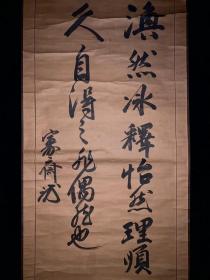 渙然冰釋怡然理順
久自得之非偶然也